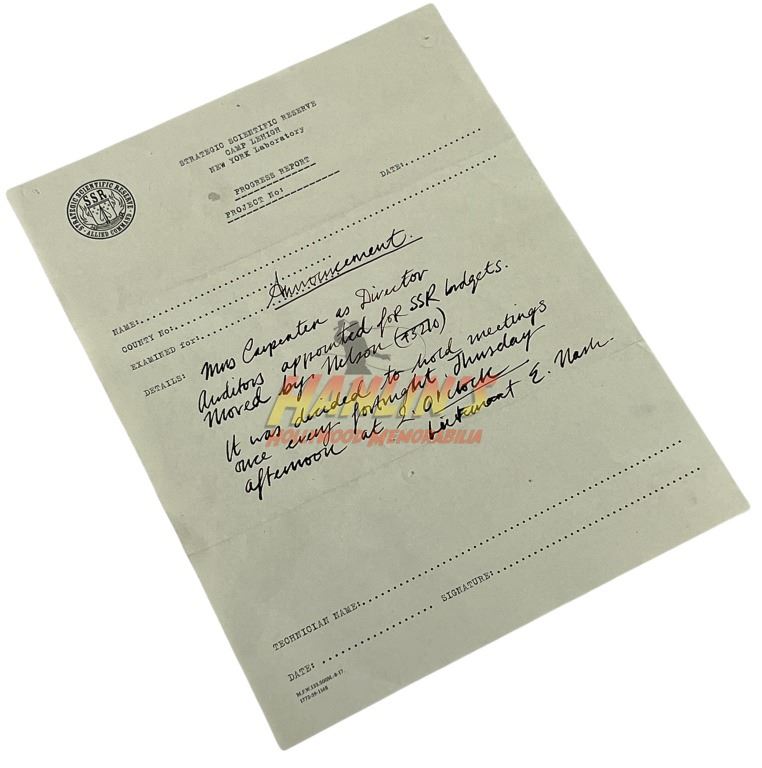 STRATEGIC SCIENTIFIC RESERVE
CAMP LEHIGH
NEW YORK Laboratory
PROGRESS REPORT
PROJECT No:
DATE:
STRATEGIC SCIENTIFIC RESERVE
SSR
ALLIED COMMAND
Announcement.
NAME:
COUNTY No:
EXAMINED for:
DETAILS:
Mrs Carpenter as Director
Auditors appointed for SSR budgets.
Moved by Nelson
It was decided to hold meetings
once every fortnight, Thursday
afternoon at 2. O'clock
Lieutenant E. Nash.
HAMLIN'S
HOLLYWOOD MEMORABILIA
TECHNICIAN NAME:
SIGNATURE:
DATE: